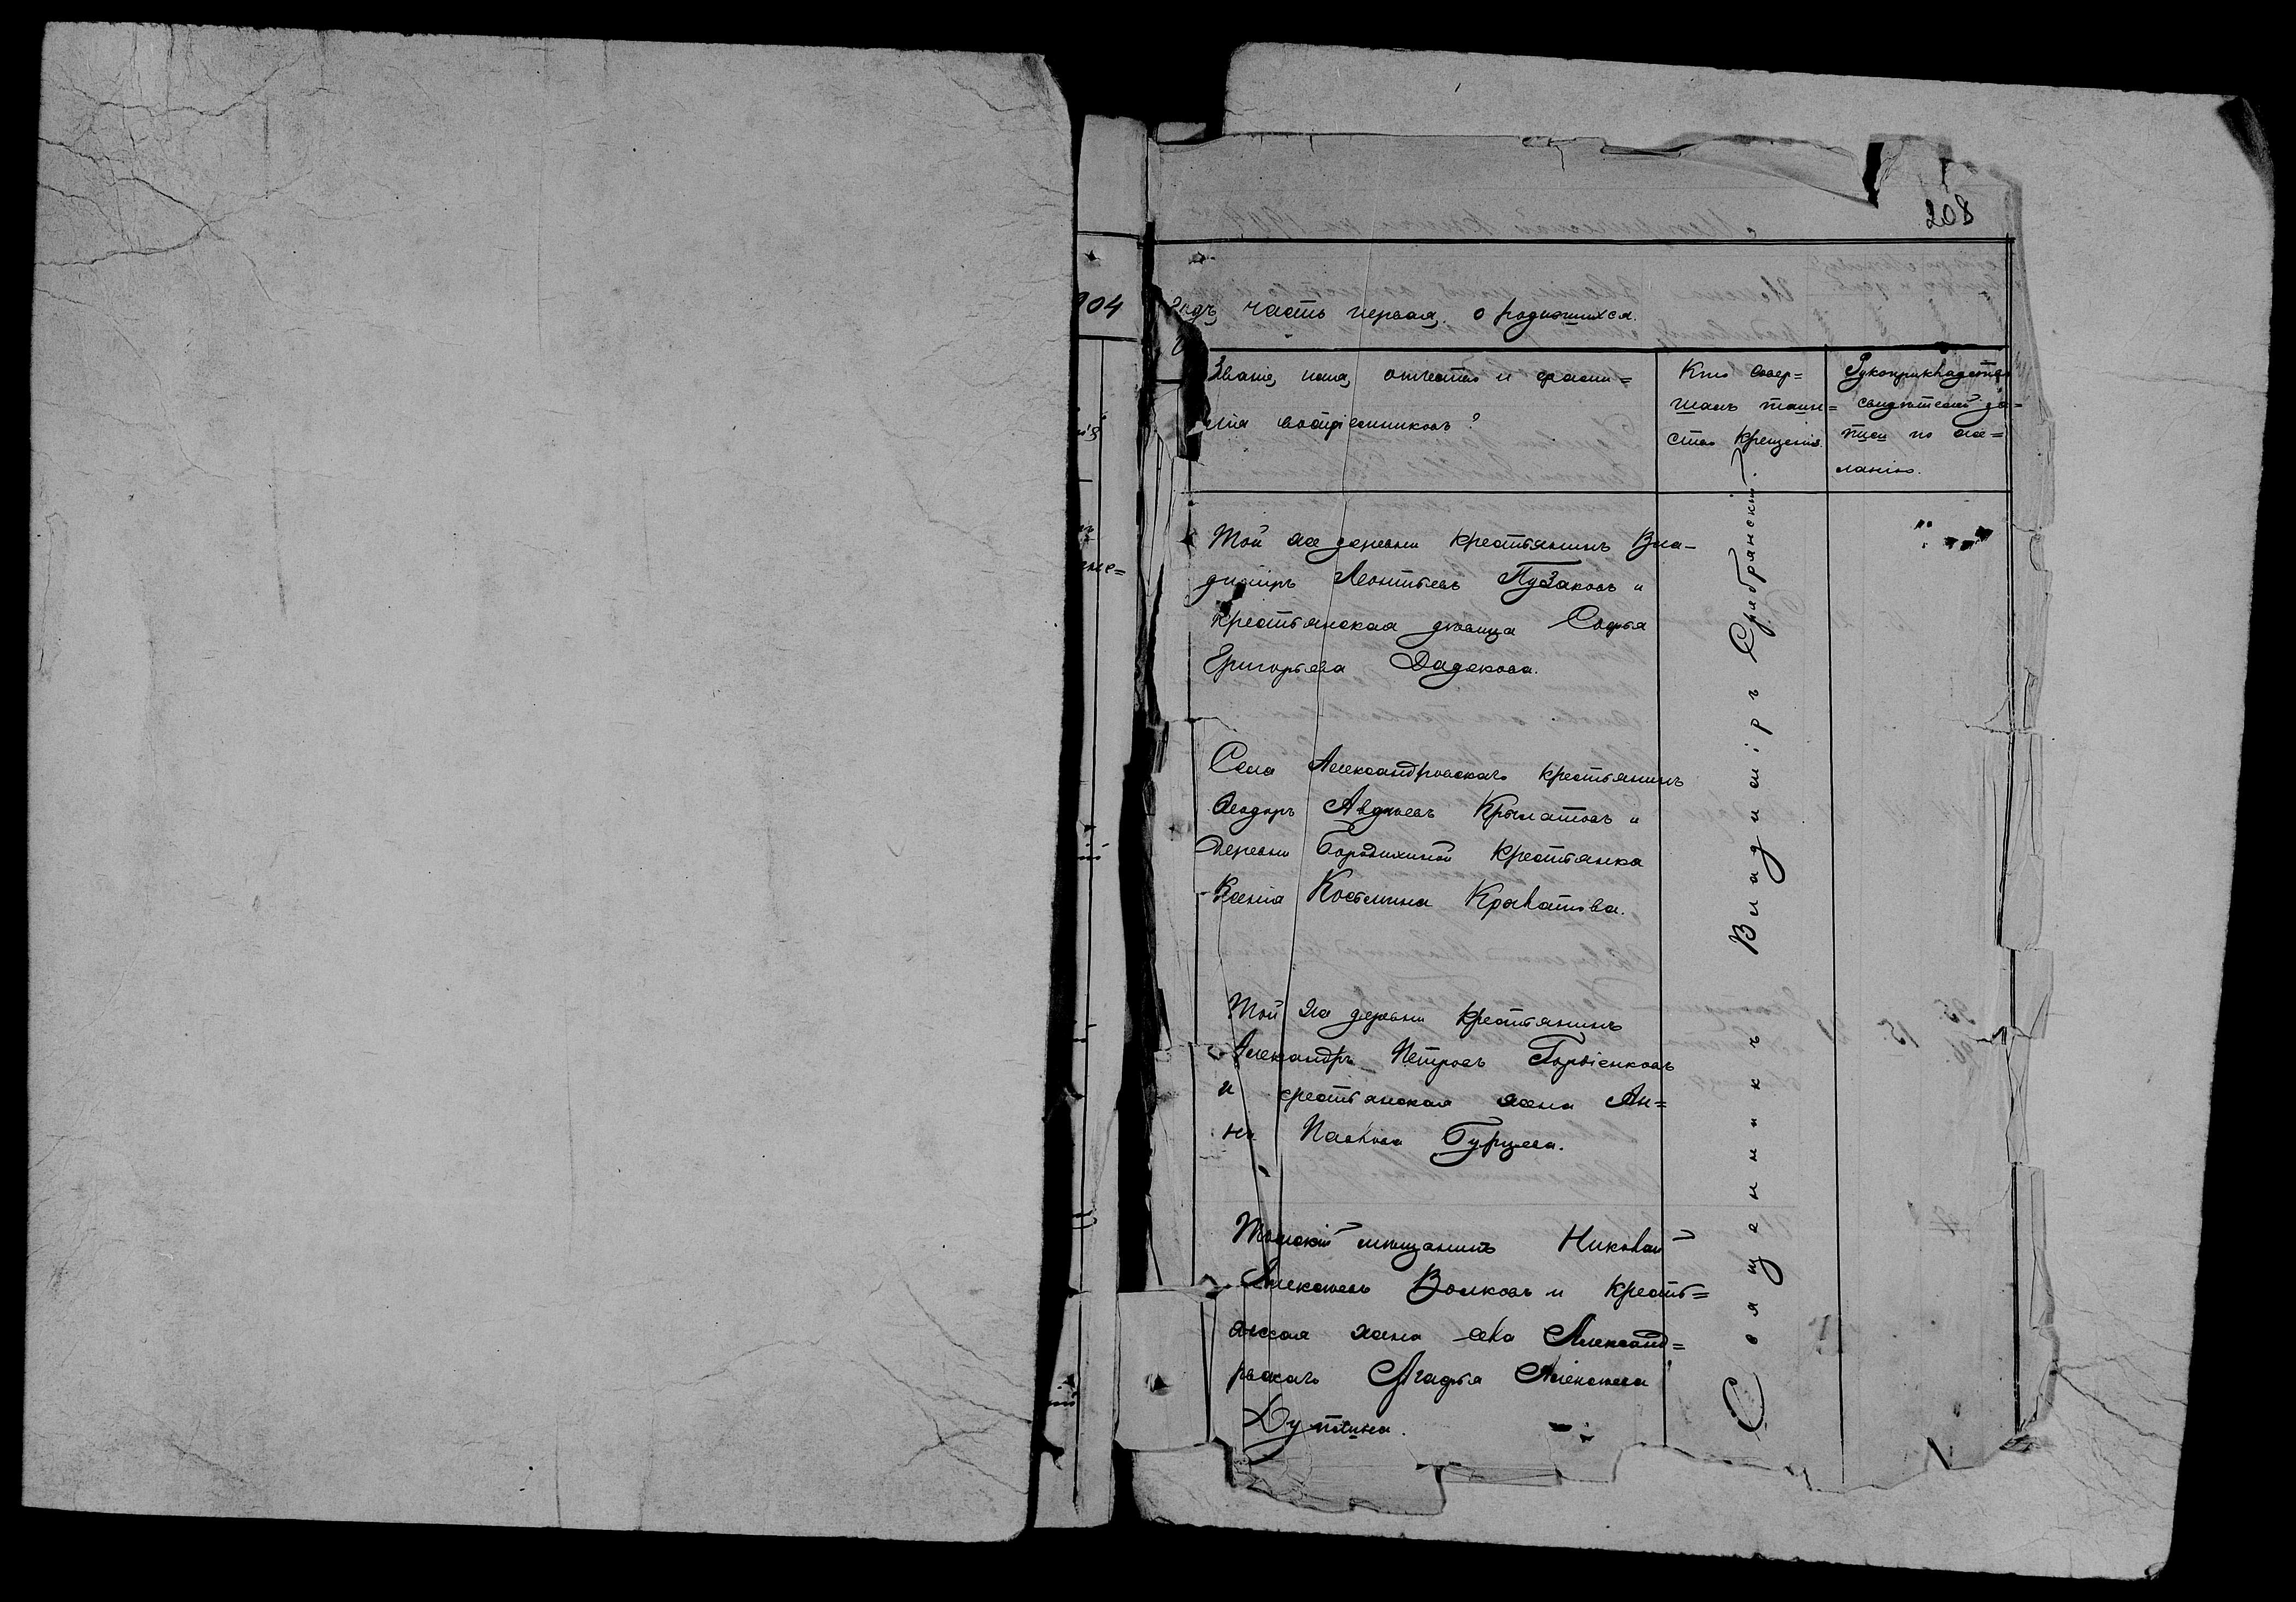 208
904 годъ, часть первая, о родившихся.
Званіе, имя, отчество и фами=
лія воспріемниковъ?
Кто совер=
шалъ таин=
ство крещенія.
Рукоприкладство
свидѣтелей за=
писи по же=
ланію.
Той же деревни крестьянинъ Вла-
диміръ Леонтьевъ Пузаковъ и
крестьянская дѣвица Софья
Григорьева Дадокова.
Села Александровскаго крестьянинъ
Ѳеодоръ Авдѣевъ Крылатовъ и
деревни Бородихиной крестьянка
Ксенія Косьмина
Той же деревни крестьянинъ
Александръ Петровъ
и крестьянская жена Ан=
на Павлова Гурцева.
Томскій мѣщанинъ Николай
Алексѣевъ Волковъ и крест=
янская жена села Александ=
рвскаго Агафья Алексѣева
Дутпина.
Священникъ Владиміръ Сребрянскій.